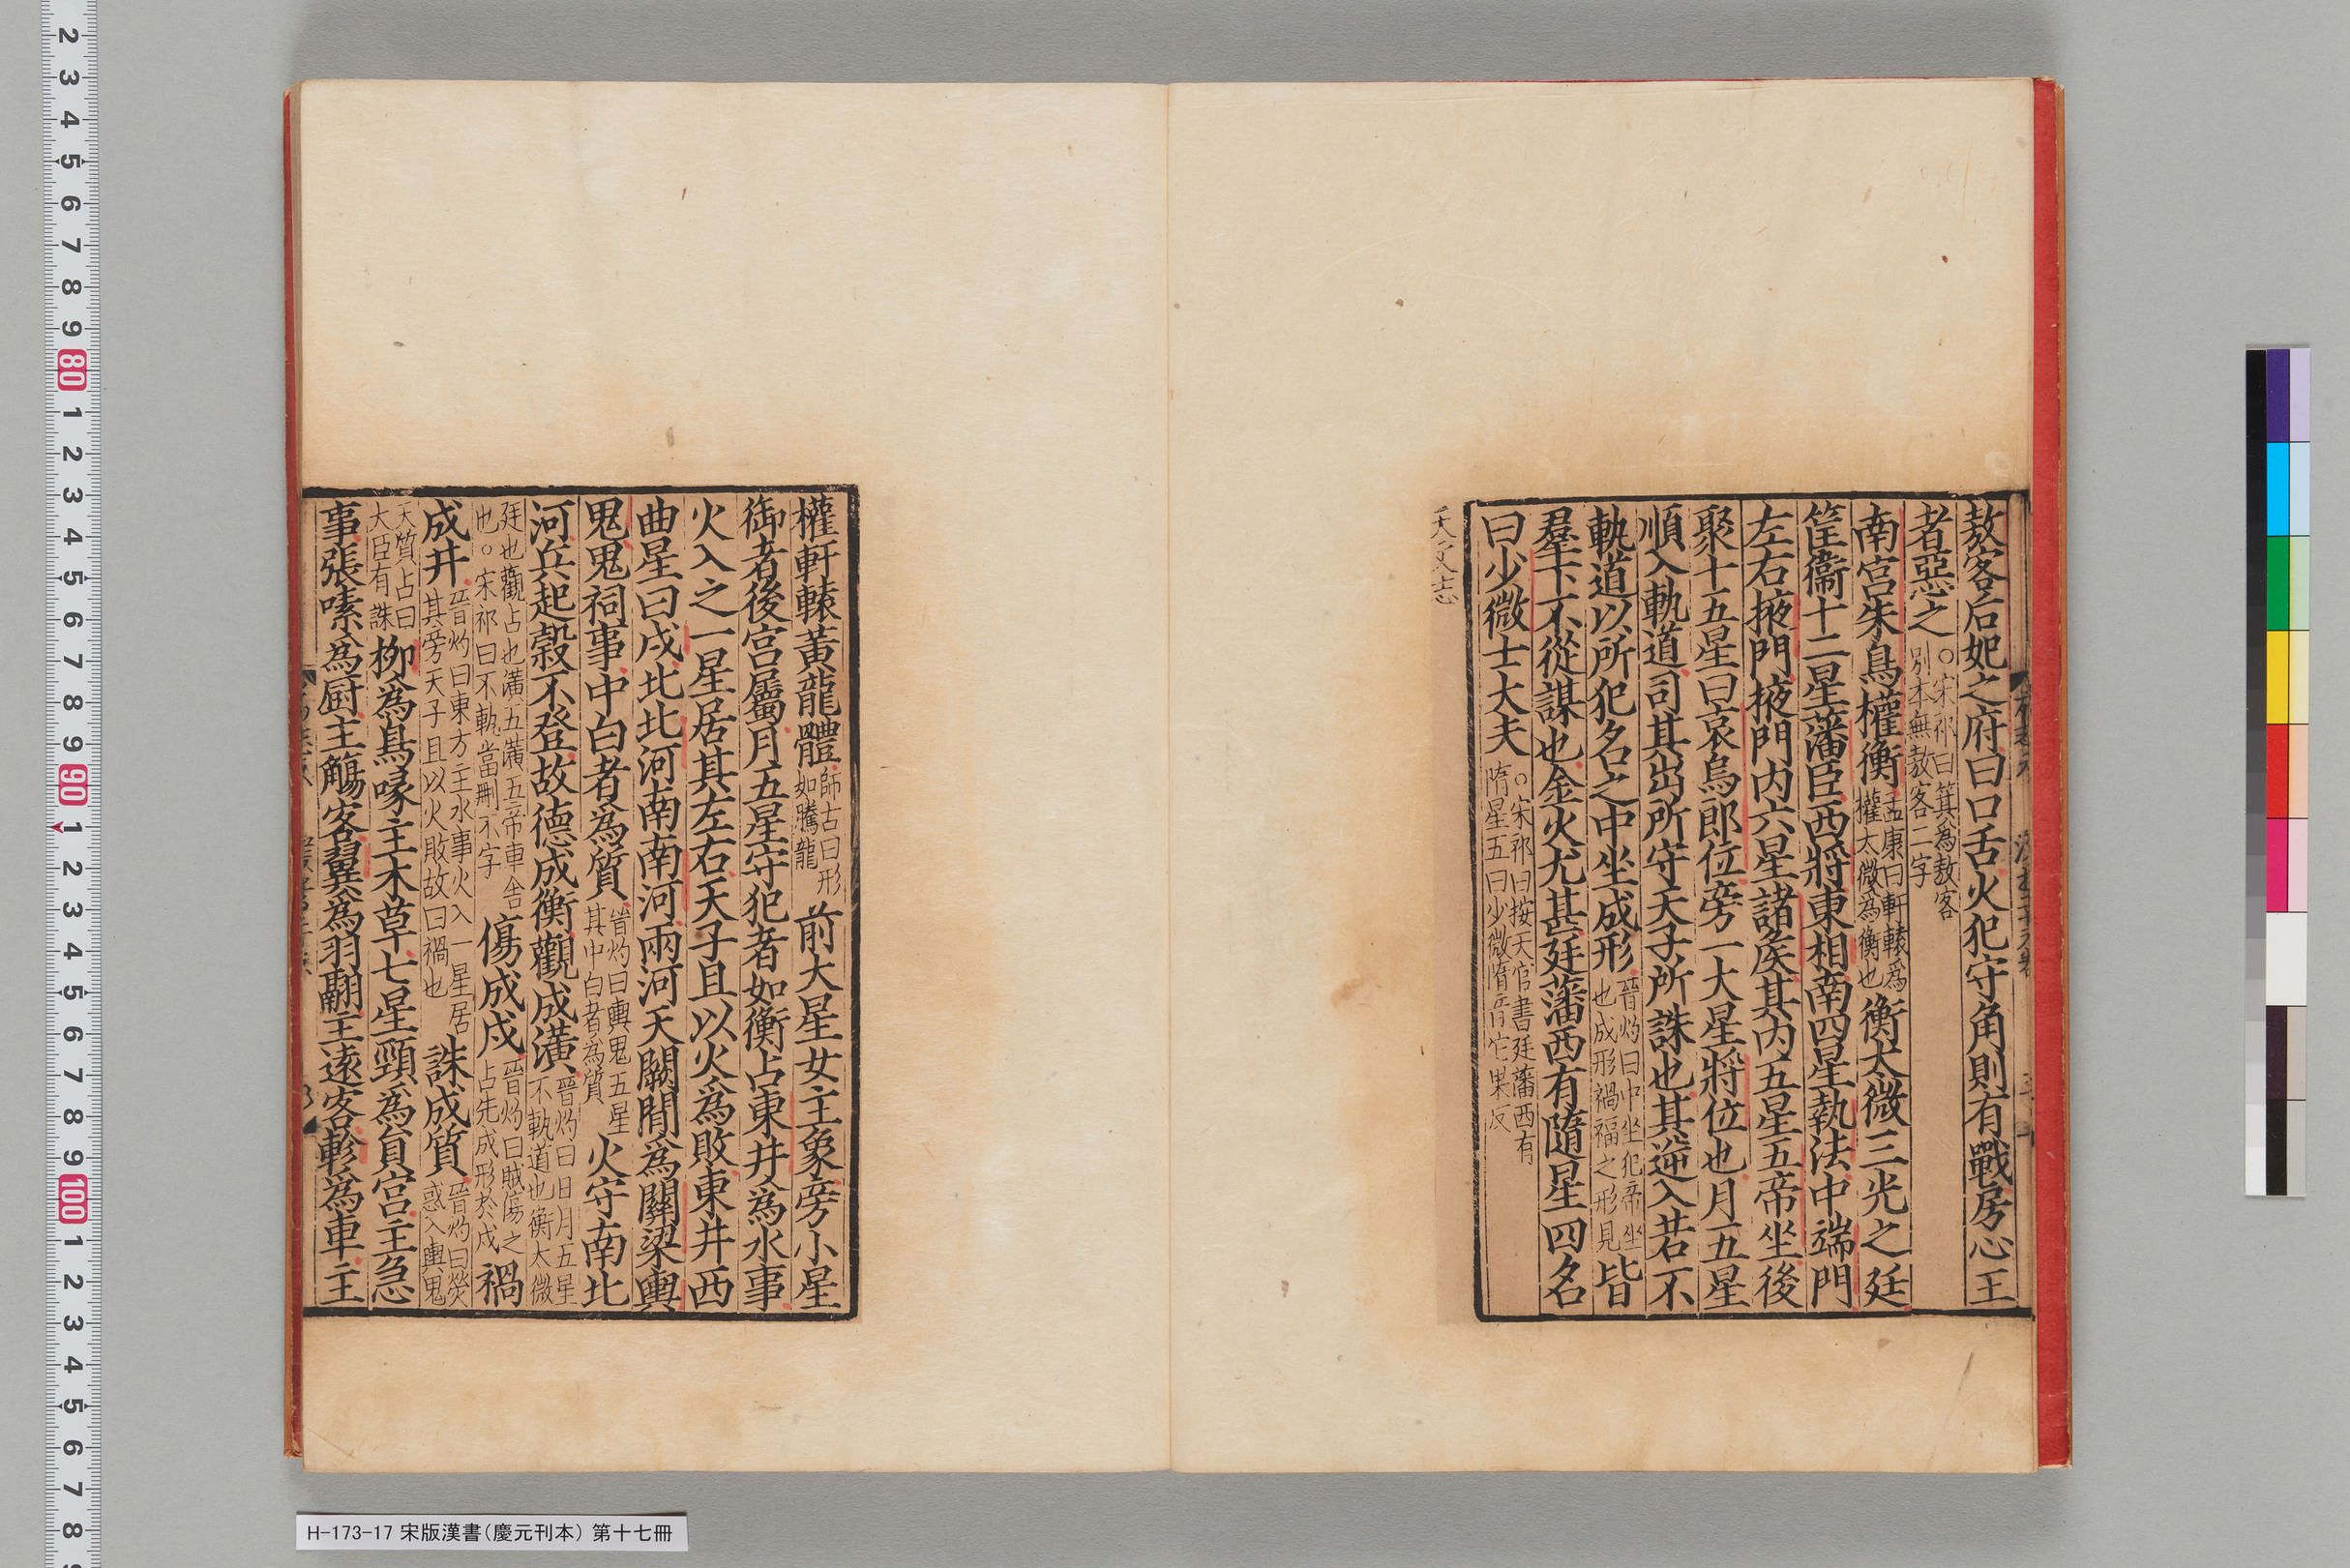 敖客后妃之府曰口舌火犯守角則有戰房心王
者惡之○宋祁曰箕為敖客別本無敖客二字
南宮朱鳥權衡孟康曰軒轅為權太微為衡也衡太微三光之廷
筐衞十二星藩臣西將東相南四星執法中端門
左右掖門掖門内六星諸矦其内五星五帝坐後
聚十五星曰哀烏郎位旁一大星將位也月五星
順入軌道司其出所守天子所誅也其逆入若不
軌道以所犯名之中坐成形晉灼曰中坐犯帝坐也成形禍福之形見皆
羣下不從謀也金火尤甚廷藩西有隨星四名
曰少微士大夫○宋祁曰按天官書廷藩西有隋星五曰少微隋音他果反
天文志
權軒轅黃龍體師古曰形如騰龍前大星女主象旁小星
御者後宮屬月五星守犯者如衡占東井為水事
火入之一星居其左右天子且以火為敗東井西
曲星曰戌北北河南南河兩河天闕閒為關梁輿
鬼鬼祠事中白者為質晉灼曰輿鬼五星其中白者為質火守南北
河兵起穀不登故德成衡觀成潢晉灼曰日月五星不軌道也衡太微
廷也觀占也潢五潢五帝車舍也○宋祁曰不軌當刪不字傷成戌晉灼曰賊傷之占先成形於戌禍
成井晉灼曰東方主水事火入一星居其旁天子且以火敗故曰禍也誅成質晉灼曰熒惑入輿鬼
天質占曰大臣有誅柳為鳥喙主木草七星頸為員宮主急
事張嗉為厨主觴客翼為羽翮主遠客軫為車主
H-173-17 宋版漢書(慶元刊本) 第十七冊